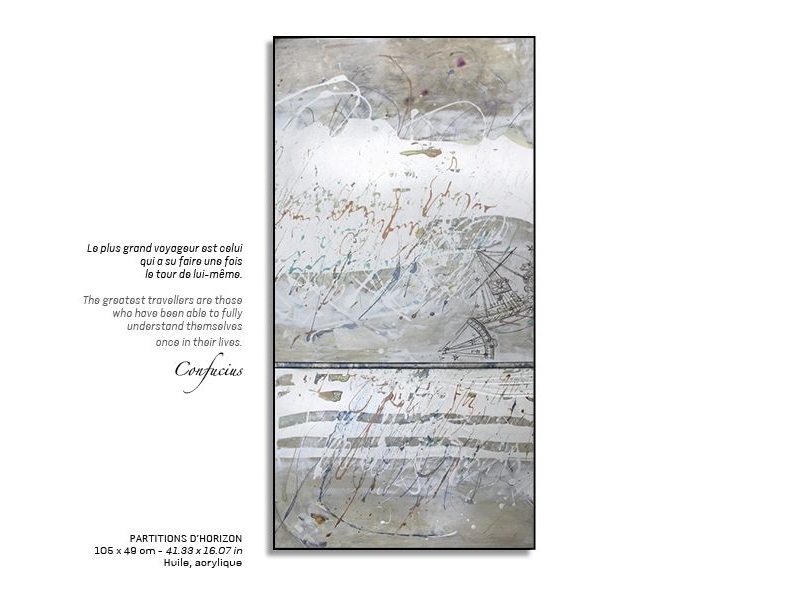 Le plus grand voyageur est celui
qui a su faire une fois
le tour de lui-même.
The greatest travellers are those
who have been able to fully
understand themselves
once in their lives.
Confucius
PARTITIONS D'HORIZON
105 x 49 cm - 41.33 x 16.07 in
Huile, acrylique